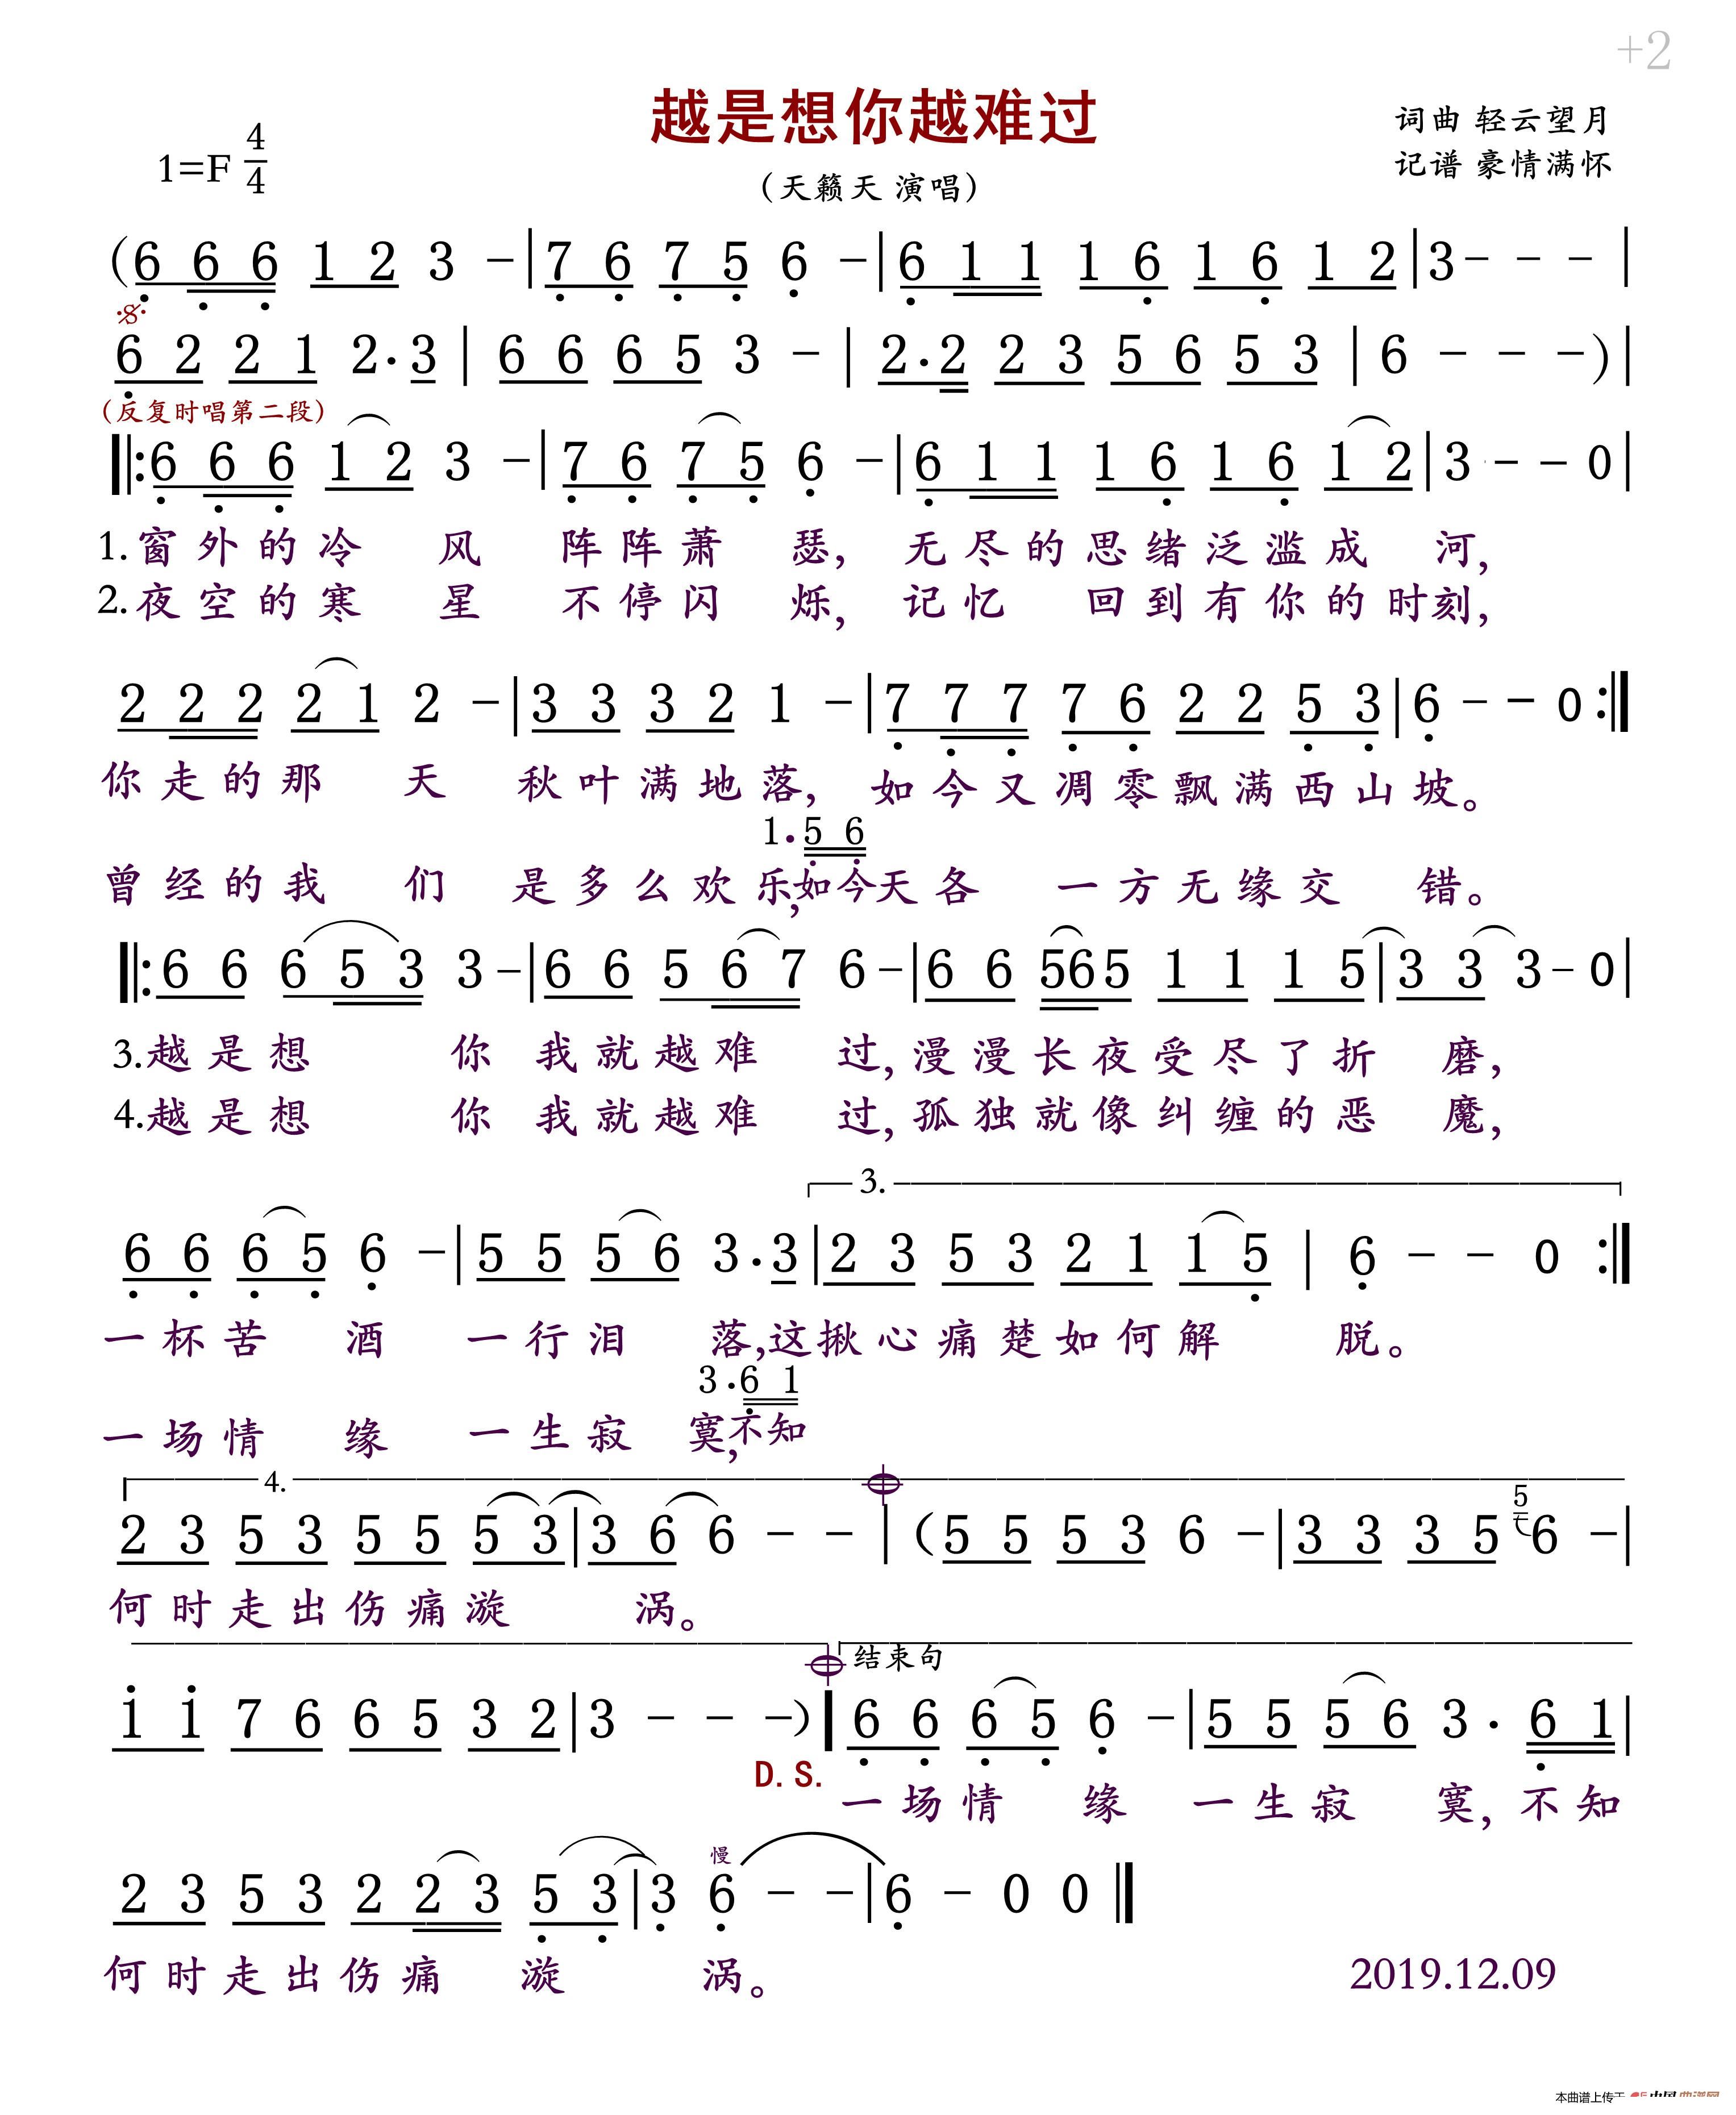 +2
越是想你越难过
1=F 4/4
（天籁天 演唱）
词曲 轻云望月
记谱 豪情满怀
(6 6 6 1 2 3 - | 7 6 7 5 6 - | 6 1 1 1 6 1 6 1 2 | 3 - - - |
6 2 2 1 2. 3 | 6 6 6 5 3 - | 2. 2 2 3 5 6 5 3 | 6 - - - ) |
（反复时唱第二段）
‖: 6 6 6 1 2 3 - | 7 6 7 5 6 - | 6 1 1 1 6 1 6 1 2 | 3 - - 0 |
1. 窗外的冷 风 阵阵萧 瑟， 无尽的思绪泛滥成 河，
2. 夜空的寒 星 不停闪 烁， 记忆 回到有你的时刻，
2 2 2 2 1 2 - | 3 3 3 2 1 - | 7 7 7 7 6 2 2 5 3 | 6 - - 0 :‖
你走的那 天 秋叶满地落， 如今又凋零飘满西山坡。
1. 5 6
曾经的我 们 是多么欢乐，如今天各 一方无缘交 错。
‖: 6 6 6 5 3 3 - | 6 6 5 6 7 6 - | 6 6 5 6 5 1 1 1 5 | 3 3 3 - 0 |
3. 越是想 你 我就越难 过，漫漫长夜受尽了折 磨，
4. 越是想 你 我就越难 过，孤独就像纠缠的恶 魔，
3.
6 6 6 5 6 - | 5 5 5 6 3. 3 | 2 3 5 3 2 1 1 5 | 6 - - 0 :‖
一杯苦 酒 一行泪 落，这揪心痛楚如何解 脱。
3. 6 1
一场情 缘 一生寂 寞，不知
4.
2 3 5 3 5 5 5 3 | 3 6 6 - - | (5 5 5 3 6 - | 3 3 3 5 5 6 - |
何时走出伤痛漩 涡。
结束句
1 1 7 6 6 5 3 2 | 3 - - - ) | 6 6 6 5 6 - | 5 5 5 6 3. 6 1 |
D.S.
一场情 缘 一生寂 寞，不知
慢
2 3 5 3 2 2 3 5 3 | 3 6 - - | 6 - 0 0 ‖
何时走出伤痛 漩 涡。
2019.12.09
本曲谱上传于